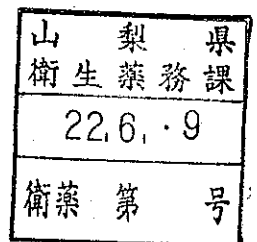 山梨県
衛生薬務課
22.6.-9
衛薬第 号